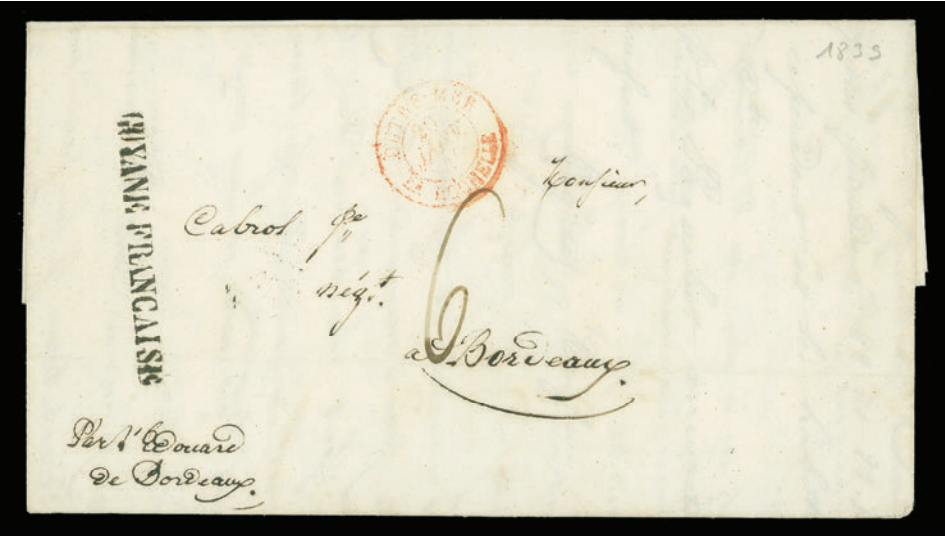 1839
GUYANE FRANCAISE
OUTRE-MER
LA ROCHELLE
Monsieur,
Cabrol
négt.
6
a Bordeaux.
Par l'Edouard
de Bordeaux.